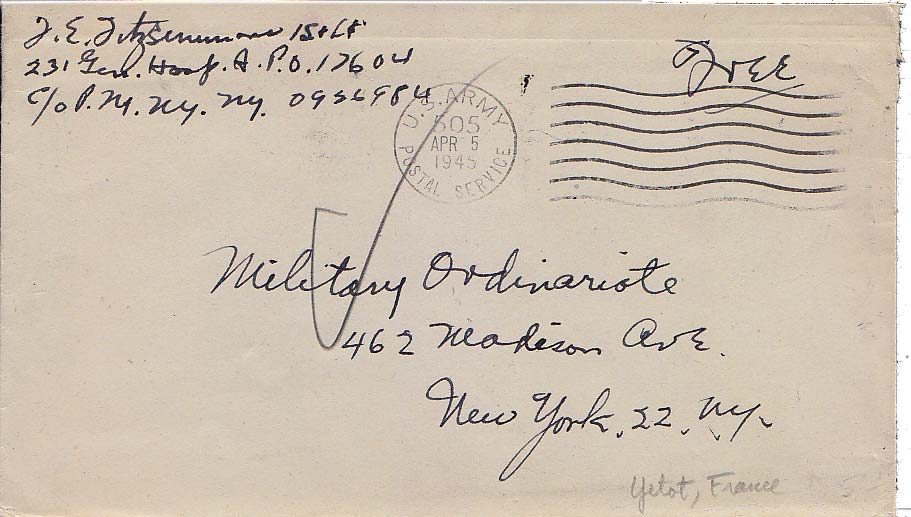 231 Gen. Hosp. A.P.O. 17604
c/o P.M. Ny. Ny. 0926984
Free
U.S. ARMY
605
APR 5
1945
POSTAL SERVICE
Military Ordinariate
462 Madison Ave.
New York, 22, Ny.
Yetot, France